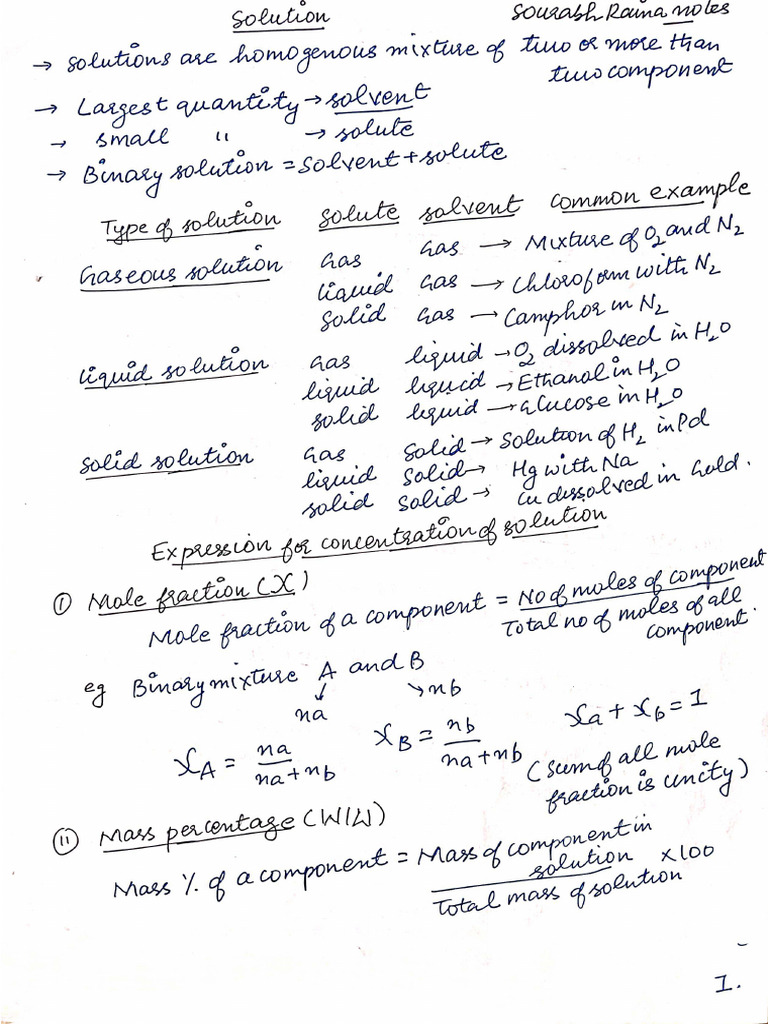 Solution
Sourabh Raina notes
→ Solutions are homogenous mixture of two or more than
two component
→ Largest quantity → solvent
→ small " → solute
→ Binary solution = Solvent + solute
Type of solution solute solvent common example
Gaseous solution Gas Gas → Mixture of O2 and N2
liquid Gas → Chloroform with N2
Solid Gas → Camphor in N2
liquid solution Gas liquid → O2 dissolved in H2O
liquid liquid → Ethanol in H2O
solid liquid → Glucose in H2O
solid solution Gas Solid → Solution of H2 in Pd
liquid Solid → Hg with Na
solid solid → Cu dissolved in Gold.
Expression for concentration of solution
(i) Mole fraction (X)
Mole fraction of a component = No of moles of component
Total no of moles of all
component.
eg Binary mixture A and B
na nb
xA = na / na + nb xB = nb / na + nb xa + xb = 1
(sum of all mole
fraction is unity)
(ii) Mass percentage (W/W)
Mass % of a component = Mass of component in
solution x100
Total mass of solution
1.